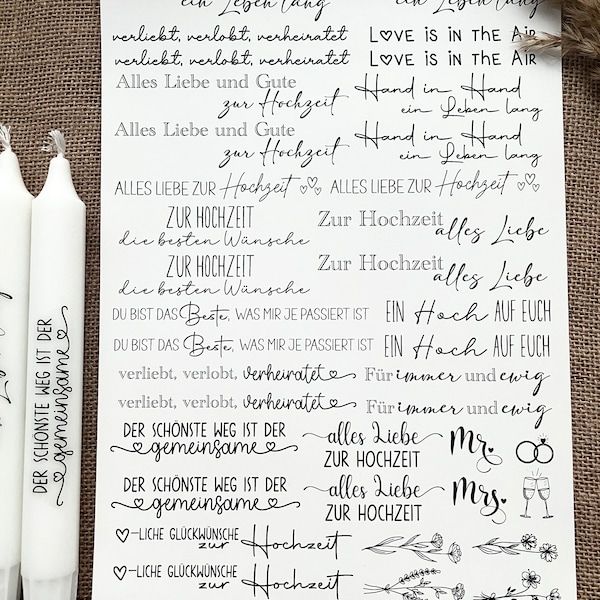 ein Leben lang ein Leben lang
verliebt, verlobt, verheiratet LOVE IS IN THE AIR
verliebt, verlobt, verheiratet LOVE IS IN THE AIR
Alles Liebe und Gute
zur Hochzeit
Hand in Hand
ein Leben lang
Alles Liebe und Gute
zur Hochzeit
Hand in Hand
ein Leben lang
ALLES LIEBE ZUR Hochzeit ALLES LIEBE ZUR Hochzeit
ZUR HOCHZEIT
die besten Wünsche
Zur Hochzeit
alles Liebe
ZUR HOCHZEIT
die besten Wünsche
Zur Hochzeit
alles Liebe
DU BIST DAS Beste, WAS MIR JE PASSIERT IST EIN Hoch AUF EUCH
DU BIST DAS Beste, WAS MIR JE PASSIERT IST EIN Hoch AUF EUCH
verliebt, verlobt, verheiratet Für immer und ewig
verliebt, verlobt, verheiratet Für immer und ewig
DER SCHÖNSTE WEG IST DER
gemeinsame
alles Liebe
ZUR HOCHZEIT
Mr.
DER SCHÖNSTE WEG IST DER
gemeinsame
alles Liebe
ZUR HOCHZEIT
Mrs.
–LICHE GLÜCKWÜNSCHE
zur Hochzeit
–LICHE GLÜCKWÜNSCHE
zur Hochzeit
DER SCHÖNSTE WEG IST DER
gemeinsame